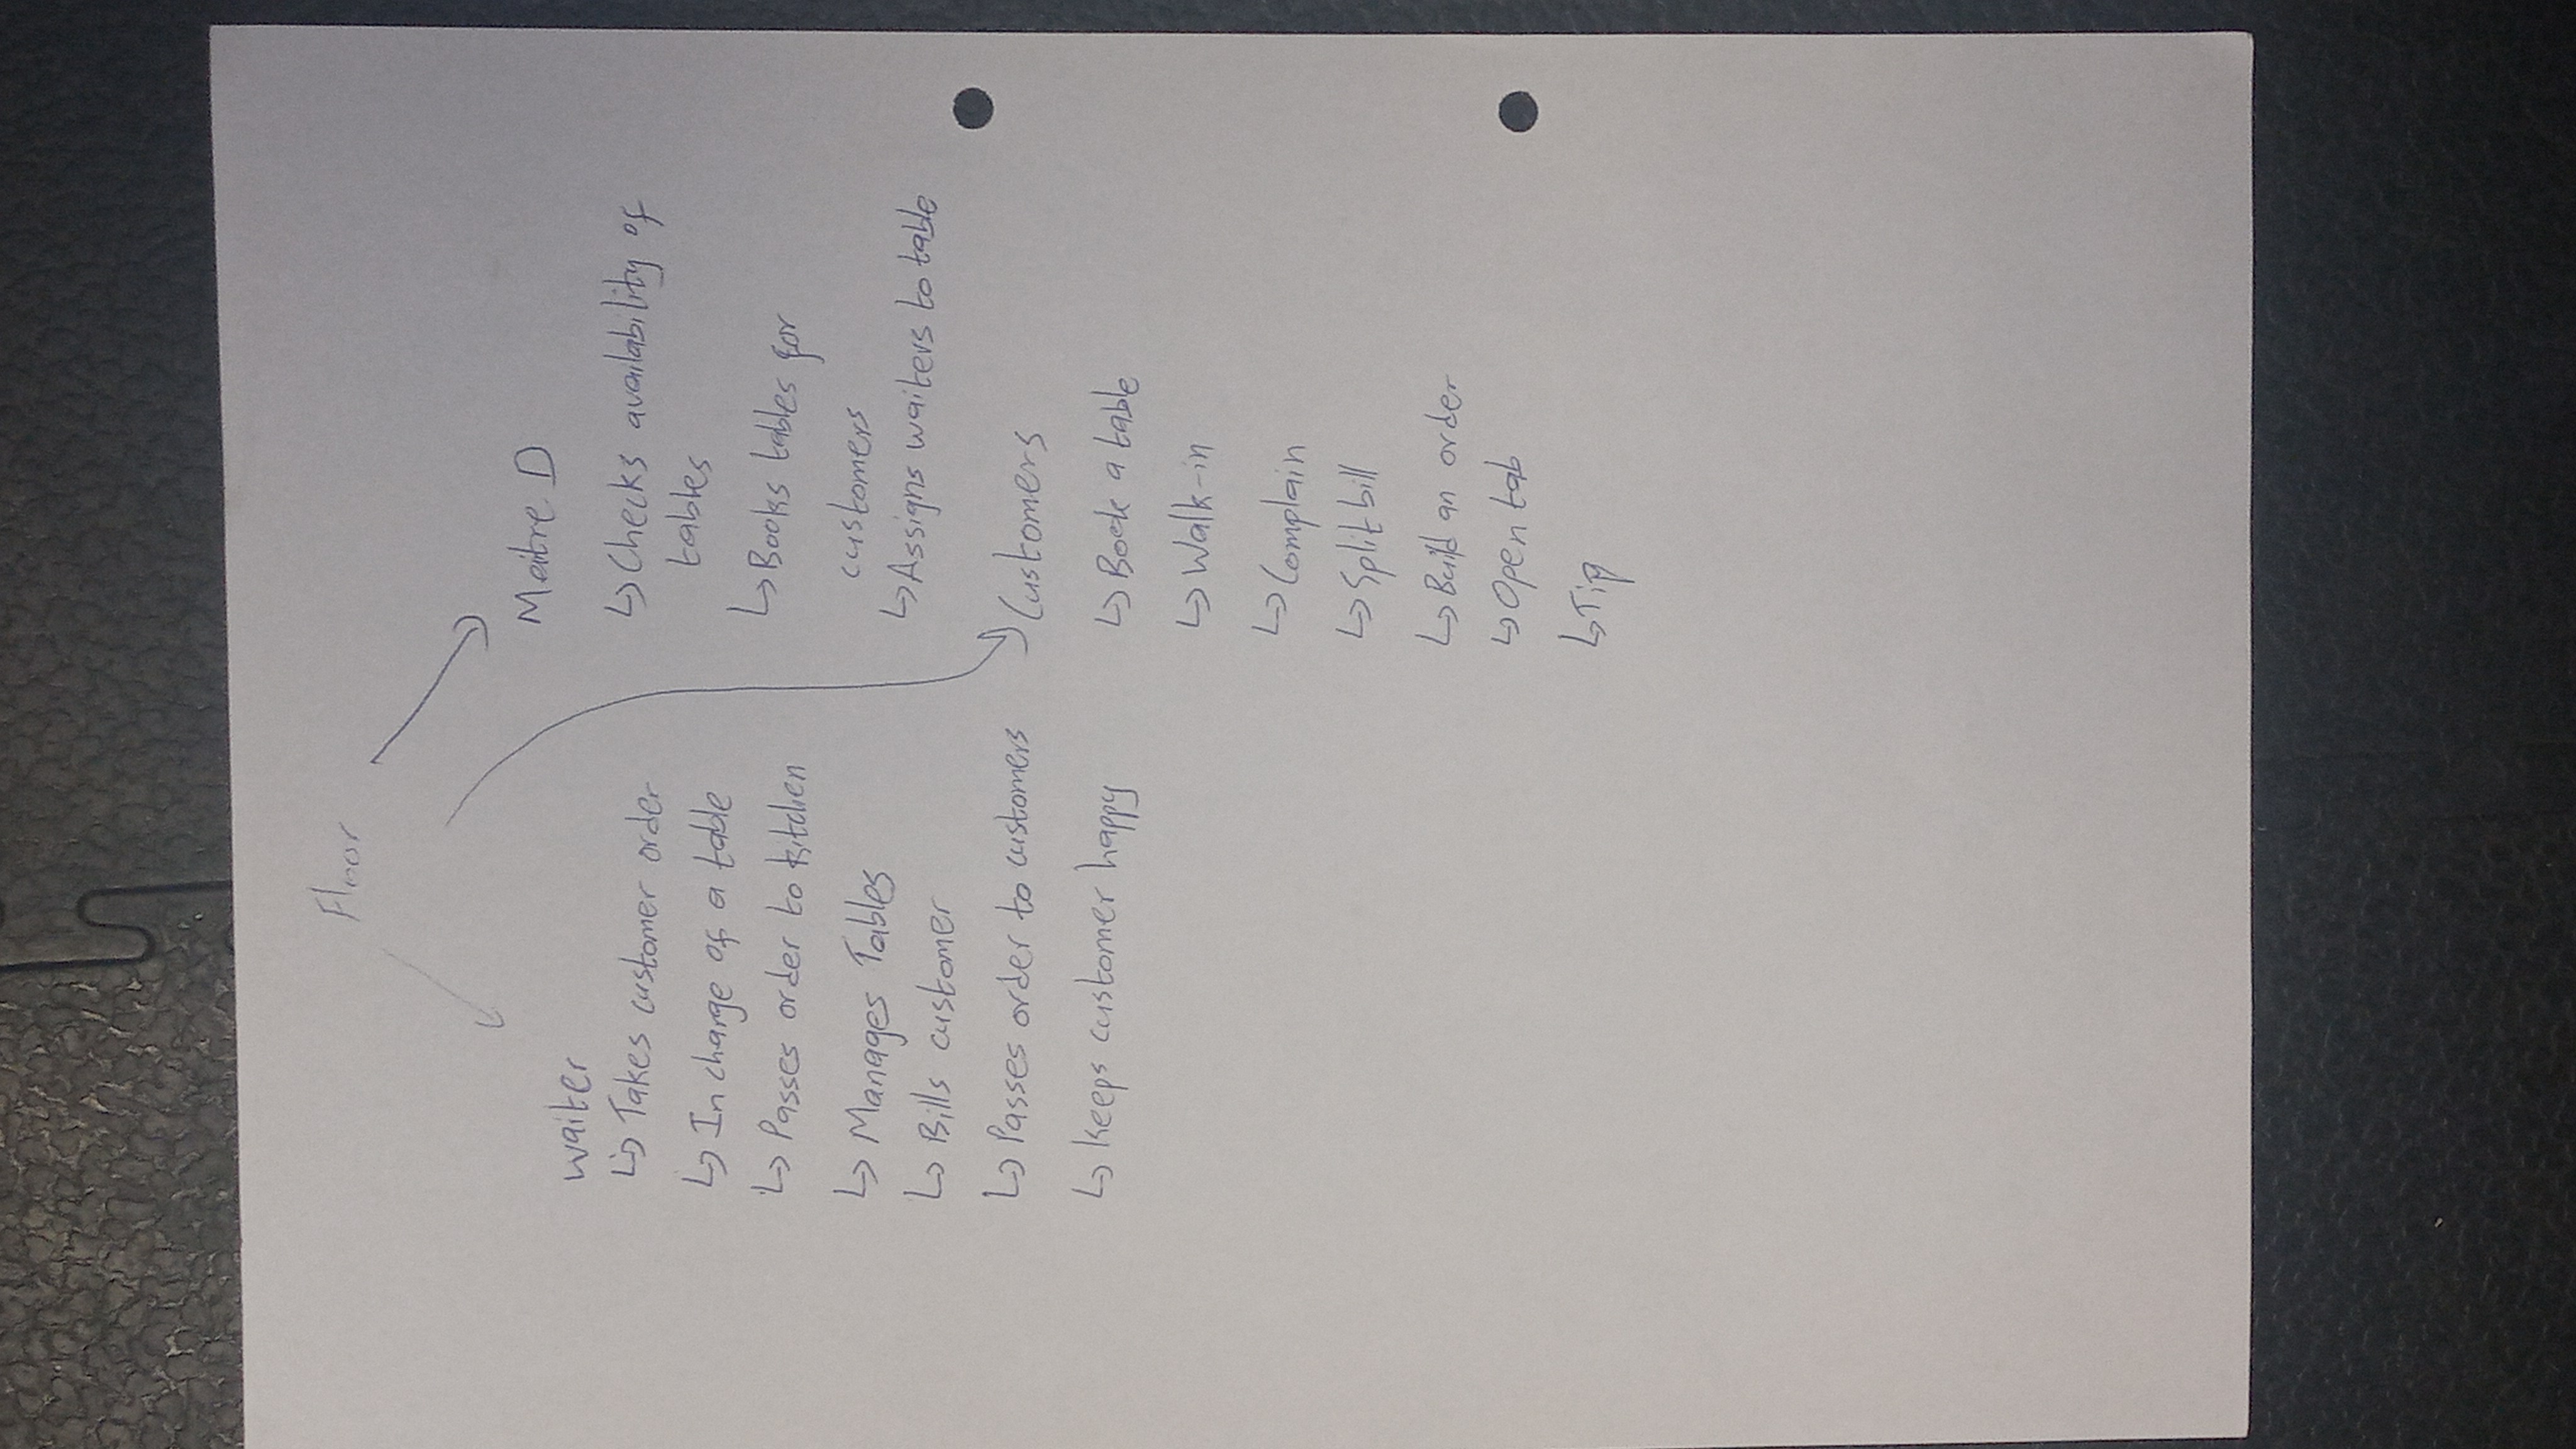 Floor
Waiter
↳ Takes customer order
↳ In charge of a table
↳ Passes order to kitchen
↳ Manages Tables
↳ Bills customer
↳ Passes order to customers
↳ Keeps customer happy
Maitre D
↳ Checks availability of
tables
↳ Books tables for
customers
↳ Assigns waiters to table
Customers
↳ Book a table
↳ Walk-in
↳ Complain
↳ Split bill
↳ Build an order
↳ Open tab
↳ Tip